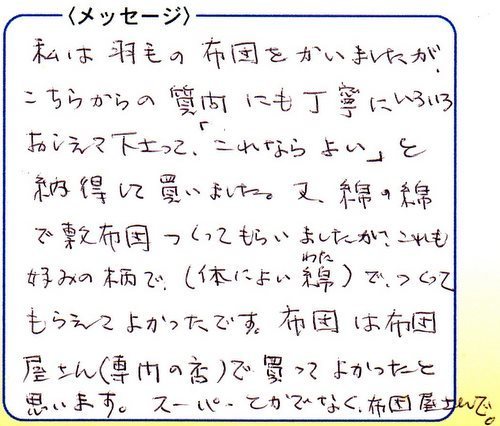 〈メッセージ〉
私は羽毛の布団をかいましたが、
こちらからの質問にも丁寧にいろいろ
おしえて下さって、「これならよい」と
納得して買いました。又、綿の綿
で敷布団つくってもらいましたが、これも
好みの柄で、(体によい綿)で、つくって
わた
もらえてよかったです。布団は布団
屋さん(専門の店)で買ってよかったと
思います。スーパーとかでなく、布団屋さんで。